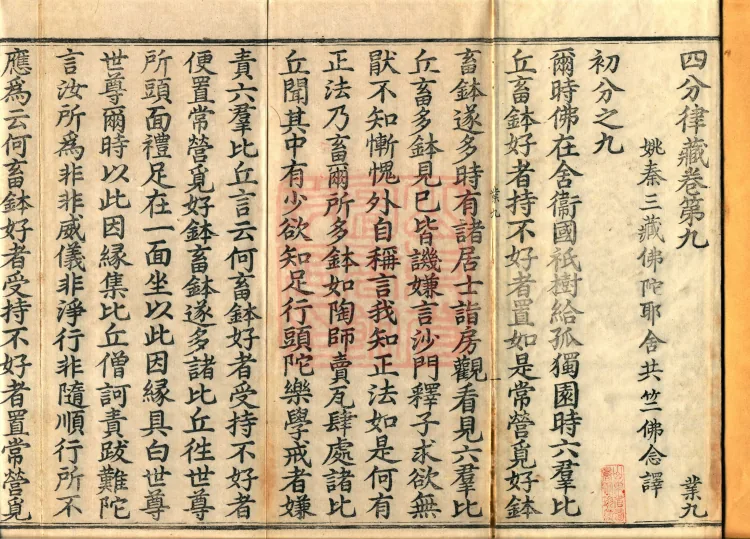 四分律藏卷第九
業九
姚秦三藏佛陀耶舍共竺佛念譯
初分之九
爾時佛在舍衞國祇樹給孤獨園時六羣比
丘畜鉢好者持不好者置如是常營覓好鉢
畜鉢遂多時有諸居士詣房觀看見六羣比
丘畜多鉢見已皆譏嫌言沙門釋子求欲無
猒不知慚愧外自稱言我知正法如是何有
正法乃畜爾所多鉢如陶師賣瓦肆處諸比
丘聞其中有少欲知足行頭陀樂學戒者嫌
責六羣比丘言云何畜鉢好者受持不好者
便置常營覓好鉢畜鉢遂多諸比丘徃世尊
所頭面禮足在一面坐以此因緣具白世尊
世尊爾時以此因緣集比丘僧訶責跋難陀
言汝所爲非非威儀非淨行非隨順行所不
應爲云何畜鉢好者受持不好者置常營覓
業九